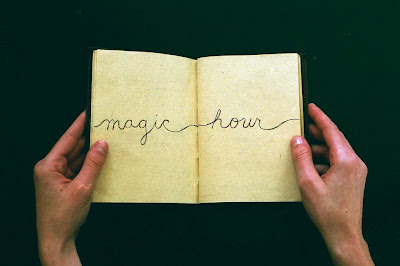 magic hour